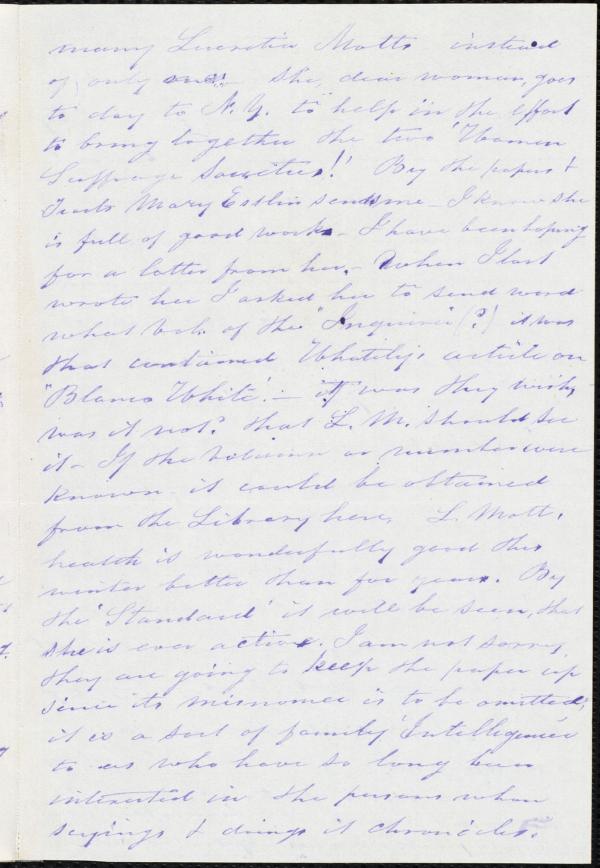 many Lucretia Motts instead
of only one! She, dear woman, goes
to day to N.Y. to help in the effort
to bring together the two Woman
Suffrage Societies!! By the papers &
Tracts Mary Estlin sends me - I know she
is full of good works - I have been hoping
for a letter from her. - When I last
wrote her I asked her to send word
what vol. of the "Inquirer" (?) it was
that contained Whately's article on
"Blanco White". - it was thy wish,
was it not? that L. M. should see
it - If the volume or number were
known it could be obtained
from the Library here. L. Mott.
health is wonderfully good this
winter better than for years. By
the 'Standard' it will be seen, that
she is ever active. I am not sorry
they are going to keep the paper up
since its misnomer is to be omitted;
it is a sort of family 'Intelligencer'
to us who have so long been
interested in the persons whom
sayings & doings it chronicles.